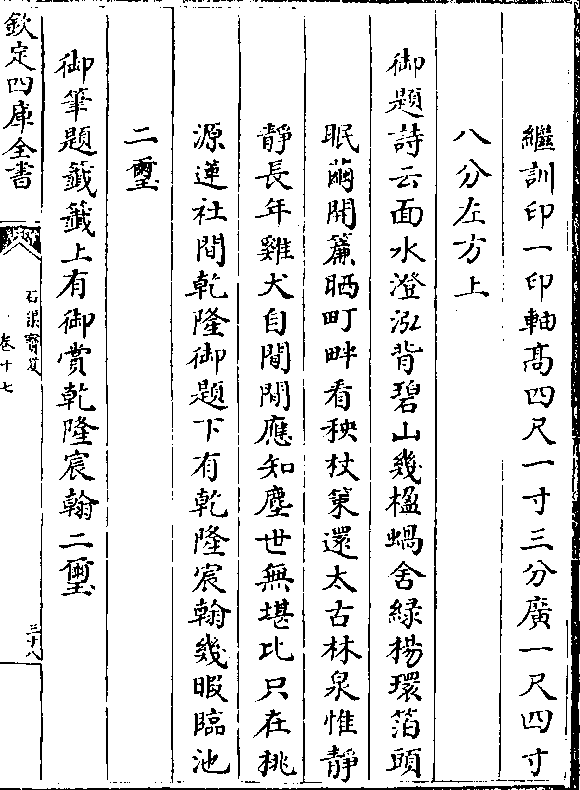 繼訓印一印軸髙四尺一寸三分廣一尺四寸
八分左方上
御題詩云面水澄泓背碧山幾楹蝸舍綠楊環箔頭
眠繭開簾晒町畔看秧杖策還太古林泉惟靜
靜長年雞犬自閒閒應知塵世無堪比只在桃
源蓮社間乾隆御題下有乾隆宸翰幾暇臨池
二璽
御筆題籤籤上有御賞乾隆宸翰二璽
欽定四庫全書
石渠寳笈
卷十七
三十八